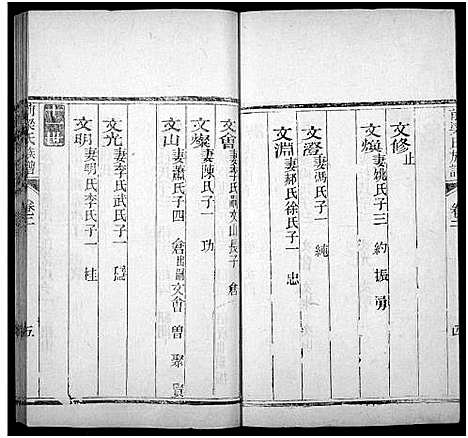 文修止
文煥妻姚氏子三 約 振 勇
文澄妻馮氏子一 純
文淵妻郝氏徐氏子一 忠
文會妻李氏嗣文山長子 倉
文燦妻陳氏子一 功
文山妻蕭氏子四 倉出嗣文會 曾 聚 貫
文光妻李氏武氏子一
文明妻明氏李氏子一 桂
梁氏族譜 卷二 五